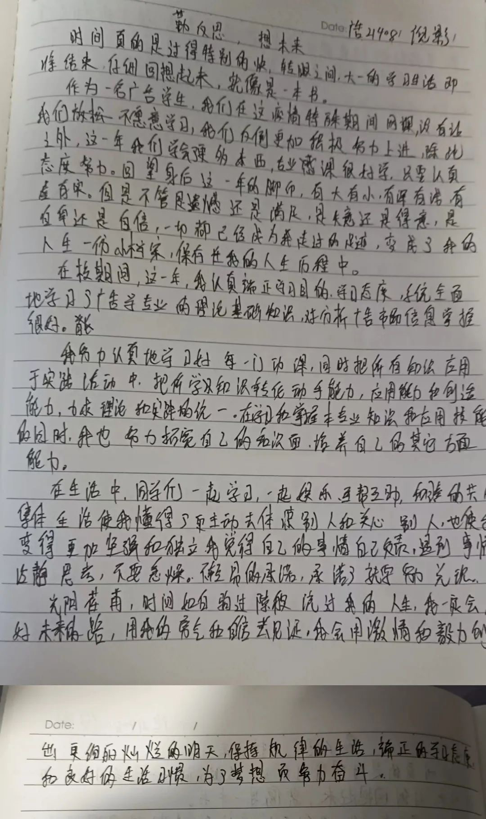 勤反思，想未来
Date: 信21408 倪影
时间真的是过得特别的快，转眼之间，大一的学习生活即
将结束，仔细回想起来，就像是一本书。
作为一名广告学生，我们在这疫情特殊期间网课，没有让
我们放松不愿意学习，我们反倒更加积极努力上进，除此
之外，这一年我们学会理的东西，专业感课很好学，只要认真
态度努力。回望身后这一年的脚印，有大有小，有深有浅，有
直有弯。但是不管是遗憾还是满足，是失意还是得意，是
自卑还是自信，一切都已经成为我走过的足迹，变成了我的
人生一份小档案，保存在我的人生历程中。
在校期间，这一年，我认真端正学习目的、学习态度，系统全面
地学习了广告学专业的理论基础知识，对分析广告市场信息掌握
很好。
我努力认真地学习好每一门功课，同时把所有知识应用
于实践活动中，把所学及知识转化动手能力，应用能力和创造
能力，力求理论和实践的统一。在学习和掌握本专业知识和应用技能
的同时，我也努力拓宽自己的知识面，培养自己的其它方面
能力。
在生活中，同学们一起学习，一起娱乐，互帮互助，和谐的共
集体生活使我懂得了更主动去体谅别人和关心别人，也使
变得更加坚强和独立，我觉得自己的事情自己负责，遇到事情
冷静思去，不要急躁。不轻易的承诺，承诺了就要的兑现。
光阴荏苒，时间如白驹过隙般流过我的人生，我一定会
好未来的路，用我的勇气和自信去见证，我会用激情和毅力创
Date: / /
出更绚丽灿烂的明天，保持规律的生活，端正的学习态度
和良好的生活习惯，为了梦想而努力奋斗。